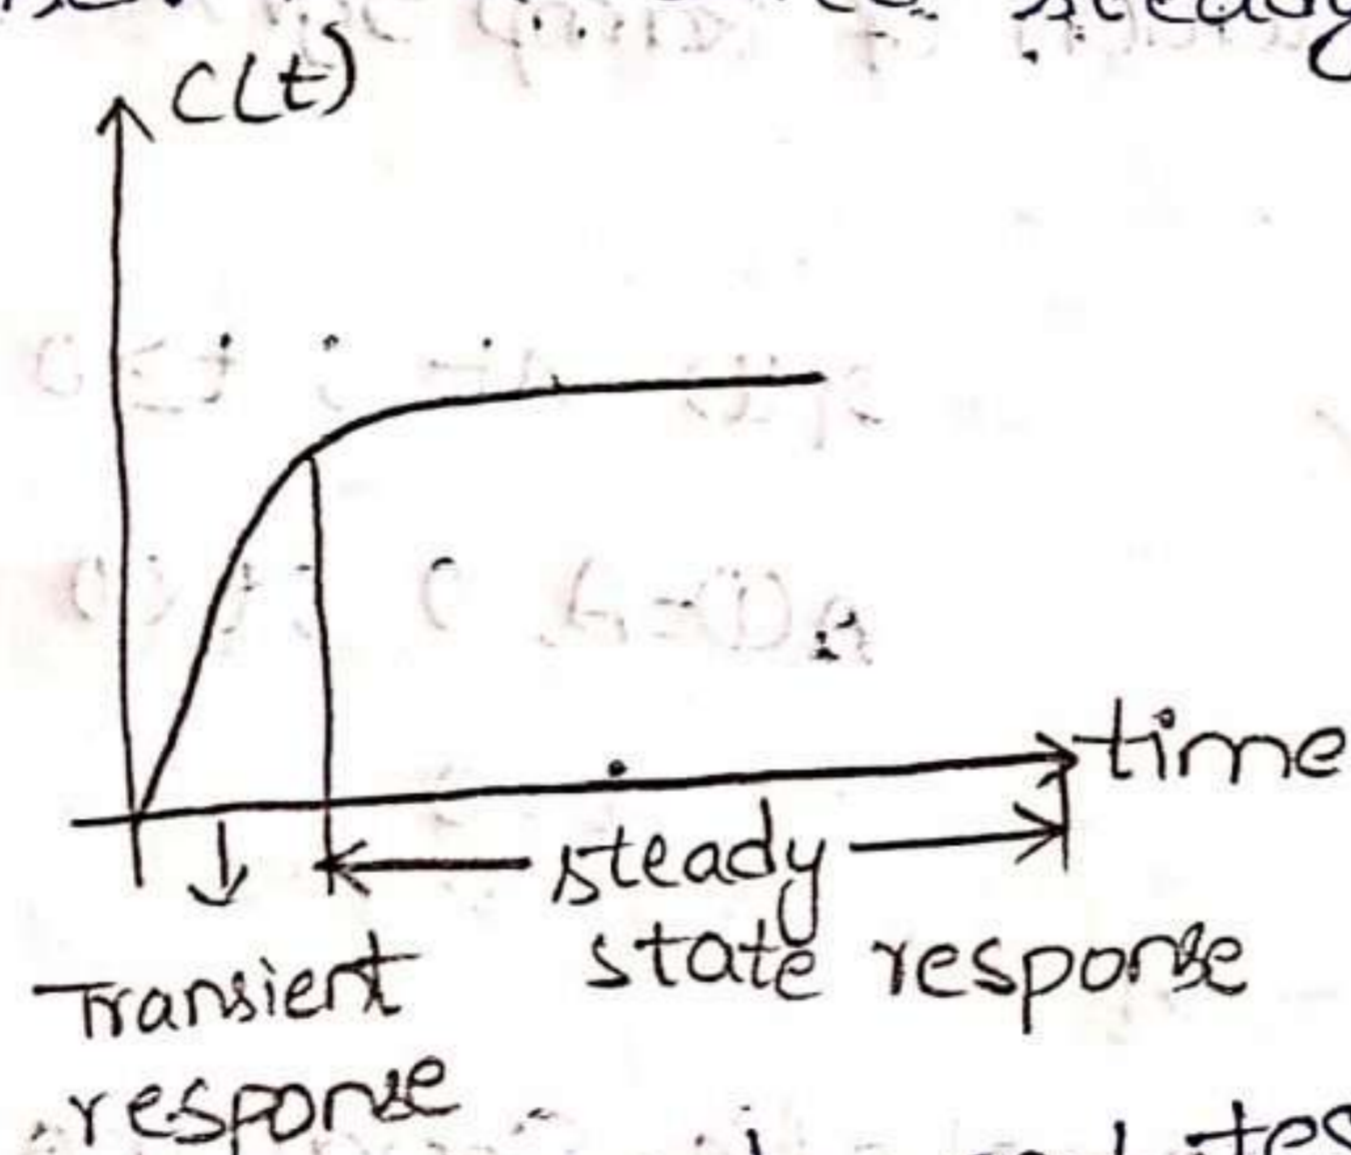 steady
C(t)
time
steady
state response
Transient
response